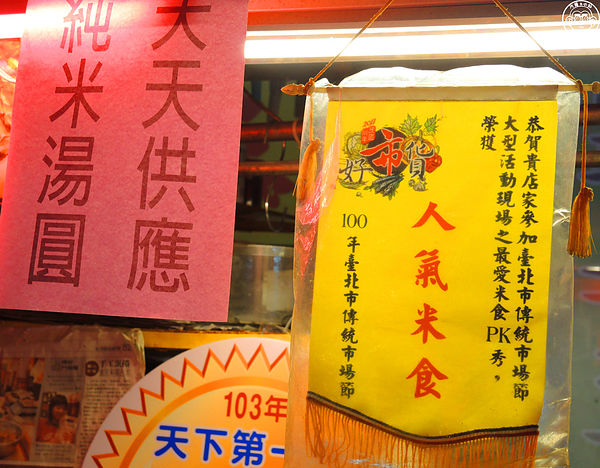 天天供應
純米湯圓
恭賀貴店家參加臺北市傳統市場節
大型活動現場之最愛米食PK秀，
榮獲
人氣米食
100年臺北市傳統市場節
2011
好市貨
103年
天下第一